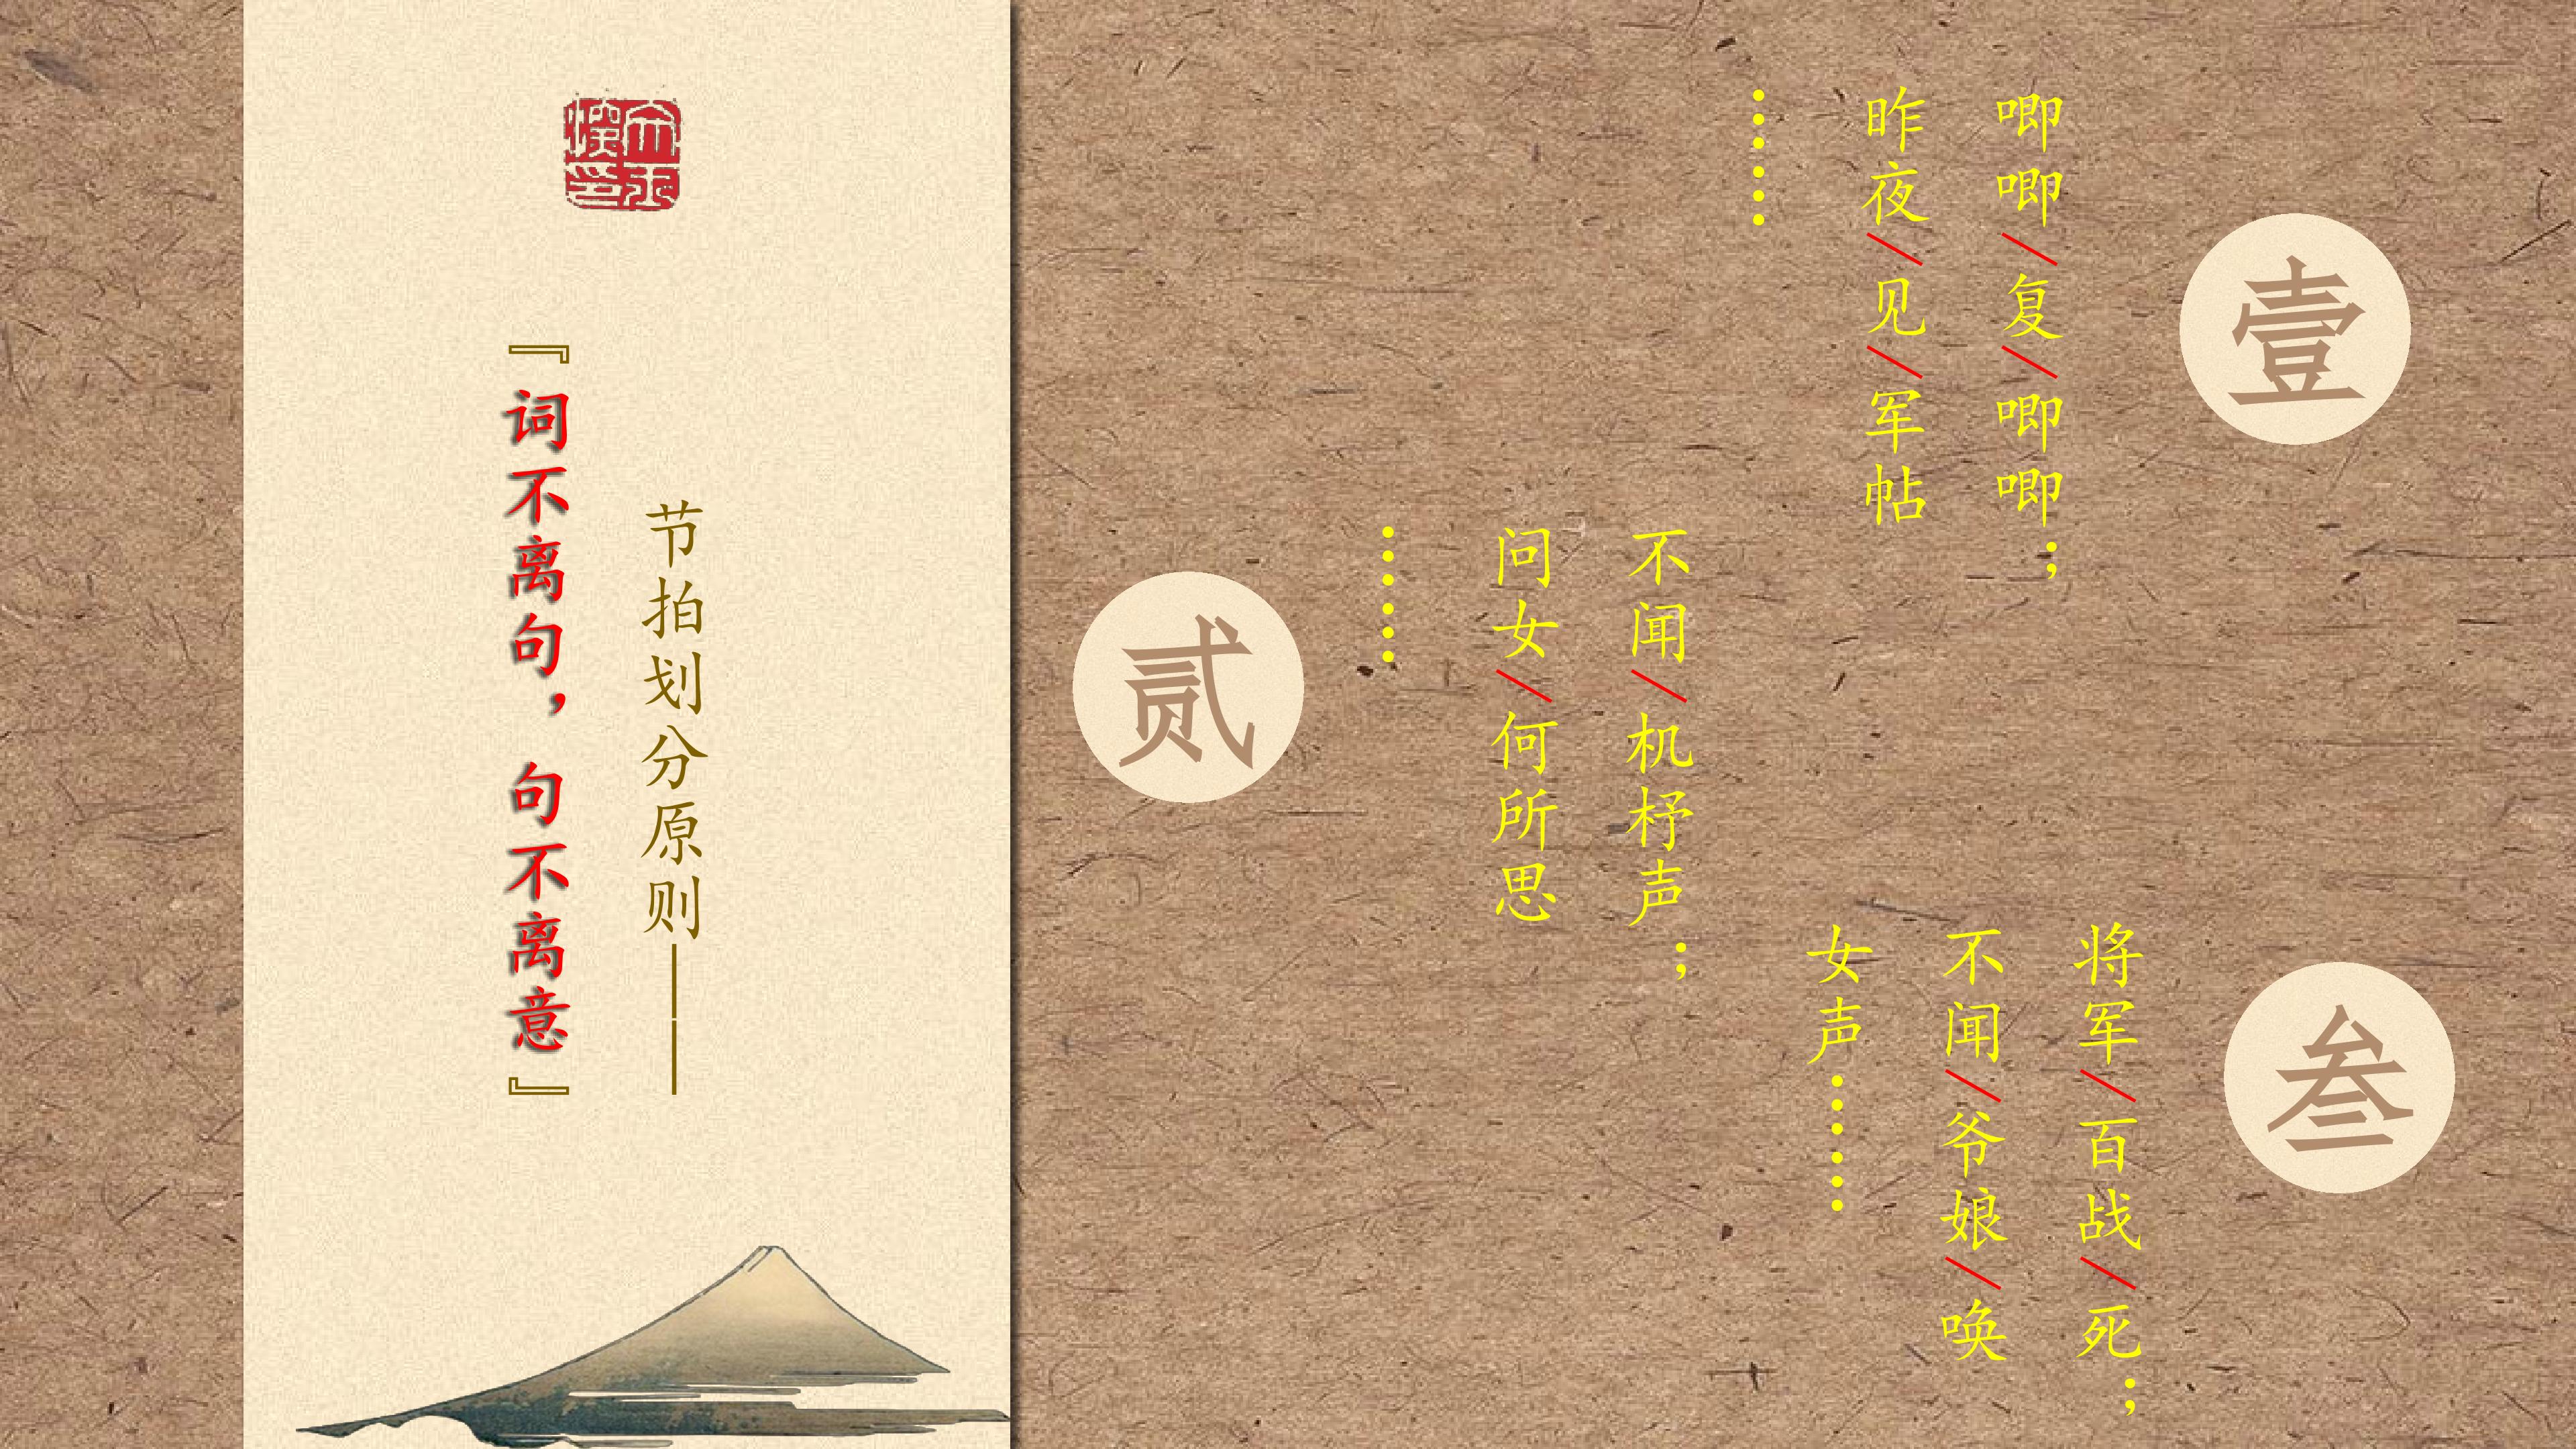 壹
唧唧/复/唧唧;
昨夜/见/军帖
……
贰
不闻/机杼声;
问女/何所思
……
叁
将军/百战/死;
不闻/爷娘/唤
女声……
节拍划分原则——
『词不离句，句不离意』